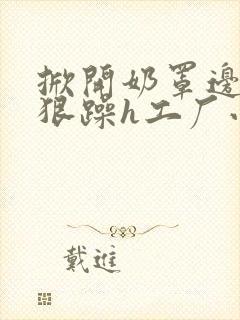 掀開奶罩邊
狠躁h工厂
戴進